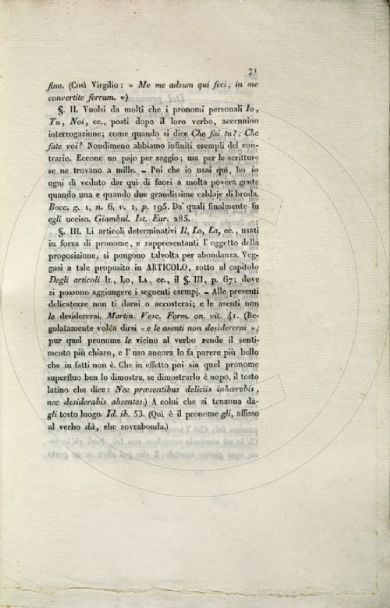 71
fine. (Così Virgilio: « Me me adsum qui feci; in me
convertite ferrum. »)
§. II. Vuolsi da molti che i pronomi personali Io,
Tu, Noi, ec., posti dopo il loro verbo, accennino
interrogazione; come quando si dice Che fai tu?; Che
fate voi? Nondimeno abbiamo infiniti esempj del con-
trario. Eccone un pajo per saggio; ma per le scritture
se ne trovano a mille. – Poi che io usai quì, ho io
ogni dì veduto dar qui di fuori a molta povera gente
quando una e quando due grandissime caldaje di broda.
Bocc. g. 1, n. 6, v. 1, p. 195. Da' quali finalmente fu
egli ucciso. Giambul. Ist. Eur. 285.
§. III. Li articoli determinativi Il, Lo, La, ec., usati
in forza di pronome, e rappresentanti l'oggetto della
proposizione, si pongono talvolta per abondanza. Veg-
gasi a tale proposito in ARTICOLO, sotto al capitolo
Degli articoli IL, LO, LA, ec., il §. III, p. 67; dove
si possono aggiungere i seguenti esempj. – Alle presenti
delicatezze non ti darai o accosterai; e le asenti non
le desidererai. Martin. Vesc. Form. on. vit. 41. (Re-
golatamente volea dirsi « e le asenti non desidererai »;
pur quel pronome le vicino al verbo rende il senti-
mento più chiaro, e l'uso ancora lo fa parere più bello
che in fatti non è. Che in effetto poi sia quel pronome
superfluo ben lo dimostra, se dimostrarlo è uopo, il testo
latino che dice: Nec præsentibus deliciis inhærebis,
nec desiderabis absentes.) A colui che si tenzona dà-
gli tosto luogo. Id. ib. 53. (Qui è il pronome gli, affisso
al verbo dà, che sovrabonda.)